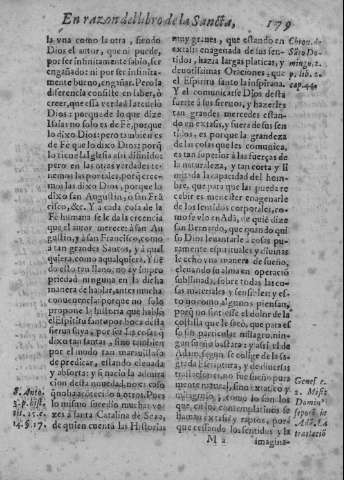 En razon del libro de la Sancta, 179
la vna como la otra, siendo
Dios el autor, que ni puede,
por ser infinitamẽte sabio, ser
engañado: ni por ser infinita-
mente bueno, engañar. Pero la
diferencia consiste en saber, o
creer, que essa verdad la reuelo
Dios: porque de lo que dize
Isaias no solo es de Fè, porque
lo dixo Dios: pero tambien es
de Fè que lo dixo Dios: porq̃
lo tiene la Iglesia assi difinido:
pero en las otras verdades te-
nemoslas por tales, porq̃ cree-
mos las dixo Dios, porque lo
dixo san Augustin, o san Frã
cisco, &c. Y a cada cosa de la
Fè humana se le da la creencia
que el autor merece: à san Au
gustin, y à san Francisco, como
a tan grandes Santos, y à qual
quiera, como a qualquiera. Y siẽ
do esto tan llano, no ay impro
priedad ninguna en la dicha
manera de hablar, antes mucha
conueniencia: porque no solo
propone la historia que habla
el Espiritu santo por boca desta
sierua suya, por ser las cosas q̃
dixo tan santas, sino tambien
por el modo tan marauilloso
de predicar, estando eleuada
y absorta: y nacio la admira
cion desta nouedad: no es caso
q̃ no ha acontecido a otros. Pues
lo mismo sucedio muchas vo-
zes à santa Catalina de Sena,
de quien cuenta las Historias
muy graues, que estando en
extasis enagenada de sus sen-
tidos, hazia largas platicas, y
deuotissimas Oraciones, que
el Espiritu santo la inspiraua.
Y el comunicarse Dios desta
suerte à sus sieruos, y hazerles
tan grandes mercedes estan-
do en extasis, y fuera de sus sen
tidos, es porque la grandeza
de las cosas que les comunica,
es tan superior à las fuerças de
la naturaleza, y tan corta y li
mitada la capacidad del hom-
bre, que para que las pueda re
cebir es menester enagenarle
de los sentidos corporales, co-
mo se vio en Adã, de quiẽ dize
san Bernardo, que quando qui
so Dios leuantarle à cosas pu-
ramente espirituales y diuinas
le echo vna manera de sueño,
eleuando su alma en operacion
sublimada, sobre todas las co-
sas materiales y sensibles: y es-
to no como algunos piensan,
porq̃ no sintiesse el dolor de la
costilla que le sacò, que para es
so sin particular milagro, nin-
gun sueño bastara: y assi el de
Adam, segun se colige de la sa-
grada Escriptura, y declaran
no fue sueño pura
mente natural, sino extatico y
milagroso, y como lo son los
que en los contemplatiuos se
llaman extasis y raptos, por
que cessando los sentidos y la
M 2 imagina-
Chron. de
Sãto Do-
mingo. 2.
p. lib. 2.
cap. 44.
Genes. c.
2.
in
Adã. La
traslaciò
S. Anto.
3. p. hist.
tit. 23. c.
14. §. 17.